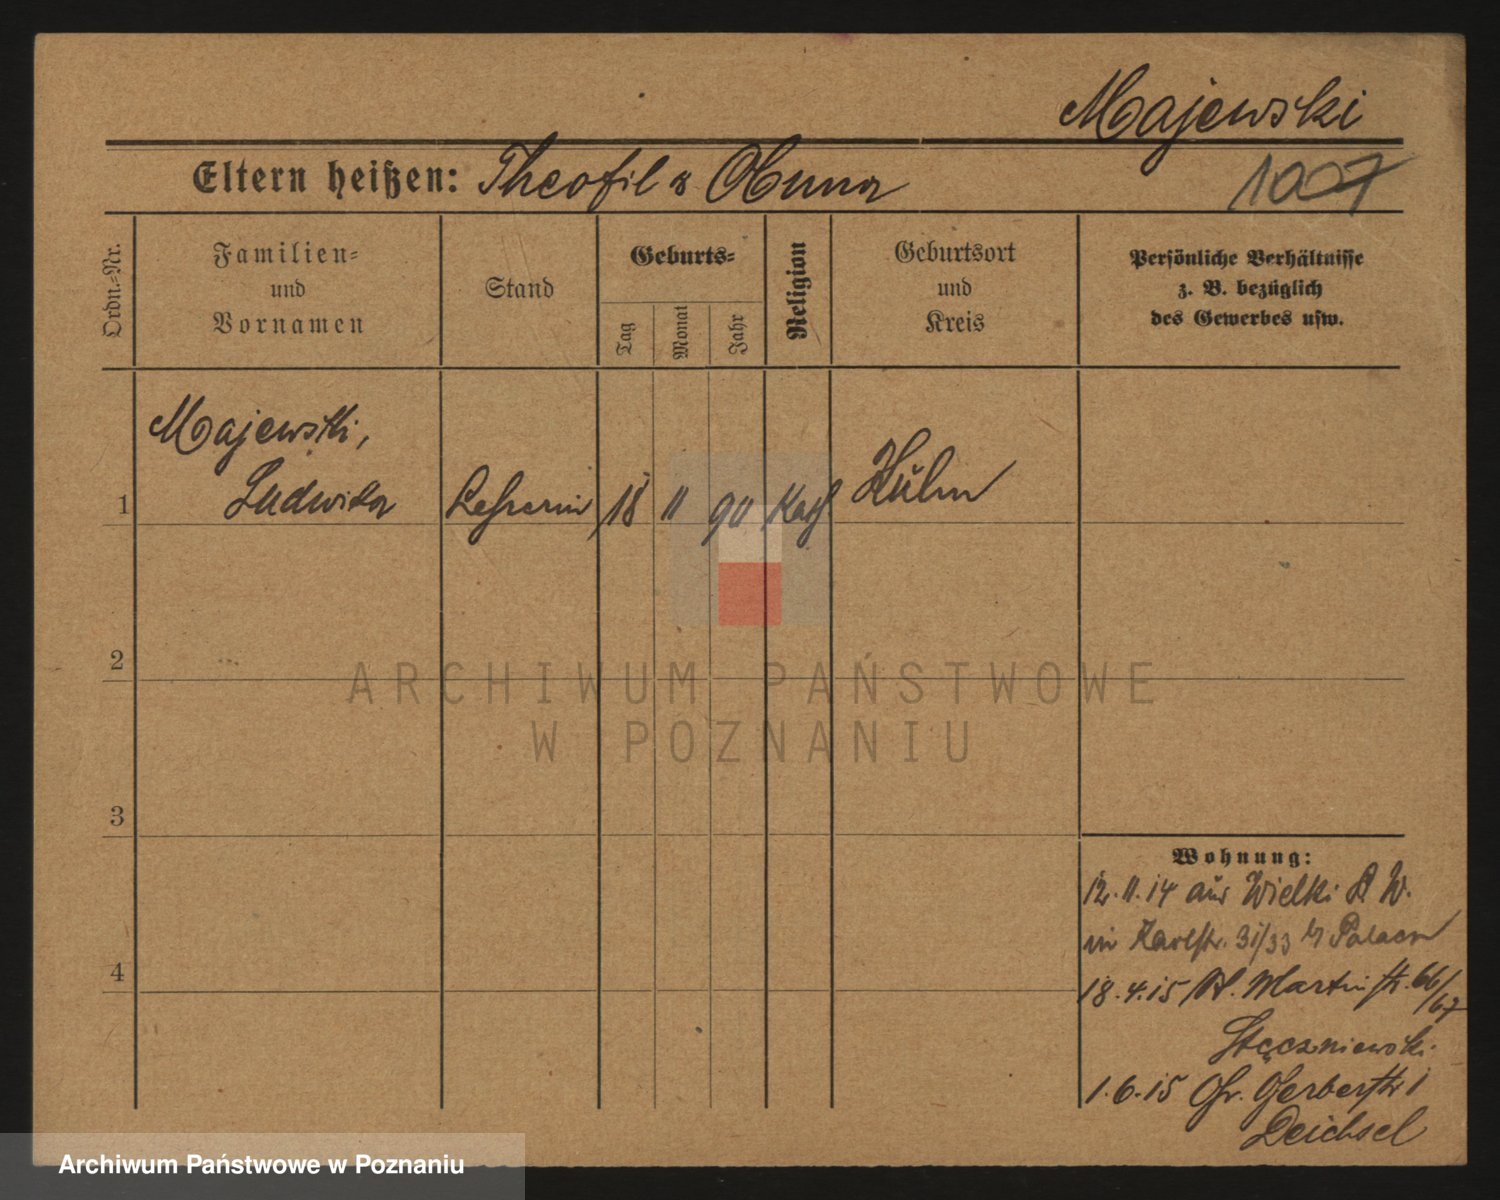 Majewski
Eltern heißen: Theofil u Anna
1007
Ordn.-Nr.
Familien-
und
Vornamen
Stand
Geburts-
Tag
Monat
Jahr
Religion
Geburtsort
und
Kreis
Persönliche Verhältnisse
z. B. bezüglich
des Gewerbes usw.
Majewski,
1 Ludwika Lehrerin 18 11 90 Kath
2
ARCHIWUM PAŃSTWOWE
W POZNANIU
3
Wohnung:
12.11.14 aus Wielki
in Karlstr. 31/33
4
18.4.15 St. Martinstr. 66/
67
Stęczniewski
1.6.15 Gr. Gerberstr 1
Deichsel
Archiwum Państwowe w Poznaniu